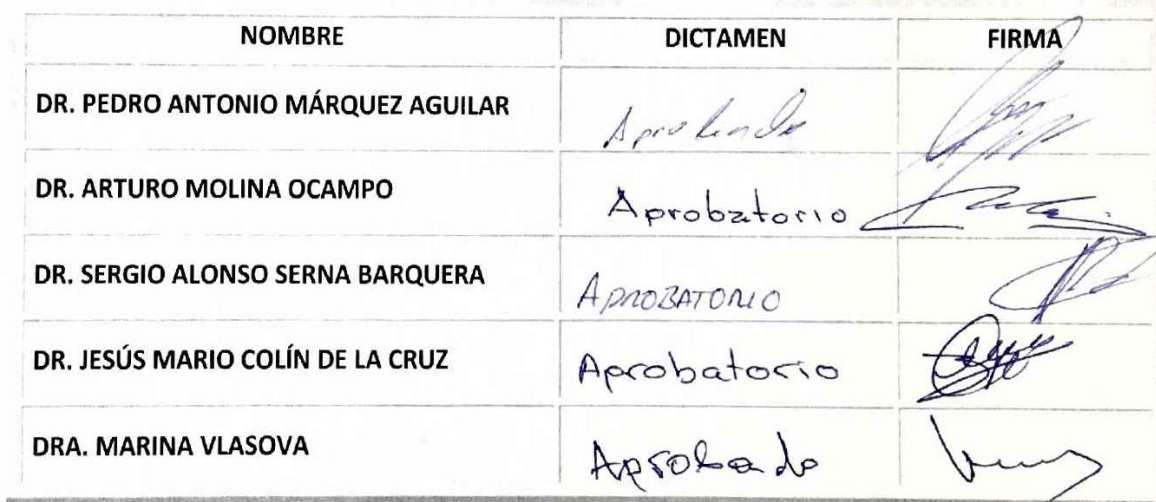 NOMBRE DICTAMEN FIRMA
DR. PEDRO ANTONIO MÁRQUEZ AGUILAR Aprobado
DR. ARTURO MOLINA OCAMPO Aprobatorio
DR. SERGIO ALONSO SERNA BARQUERA APROBATORIO
DR. JESÚS MARIO COLÍN DE LA CRUZ Aprobatorio
DRA. MARINA VLASOVA Aprobado